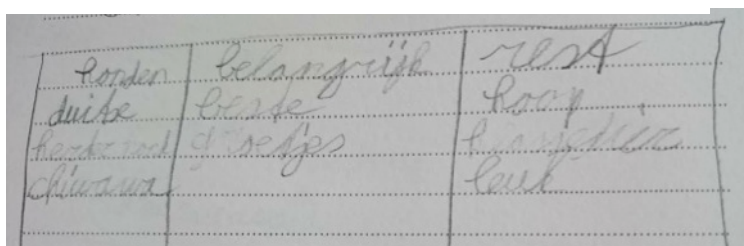 honden belangrijk rest
duitse beste hoop
groetjes
chiwawa leuk